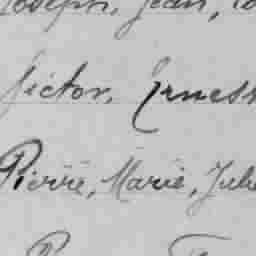 Joseph, Jean,
Victor, Ernest
Pierre, Marie, Jule